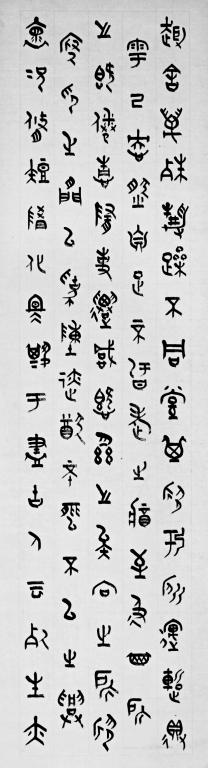 趣舍萬殊靜躁不同當其欣於所遇暫得
於己快然自足不知老之將至及其所
之既倦情隨事遷感慨係之矣向之所欣
俛仰之間以為陳迹猶不能不以之興
懷況脩短隨化終期于盡古人云死生亦